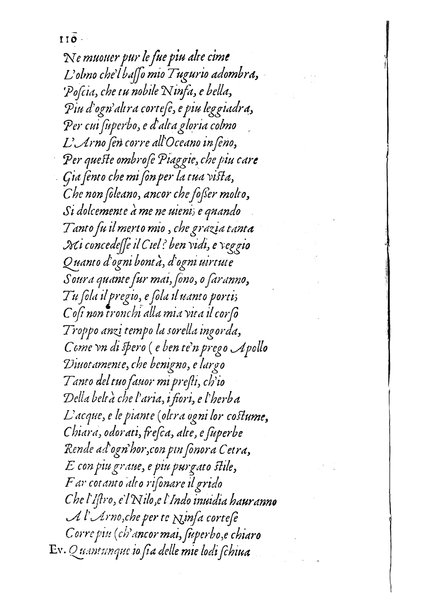 110
Ne muouer pur le sue piu alte cime
L'olmo che'l basso mio Tugurio adombra,
Poscia, che tu nobile Ninfa, e bella,
Piu d'ogn'altra cortese, e piu leggiadra,
Per cui superbo, e d'alta gloria colmo
L'Arno sen corre all'Oceano in seno,
Per queste ombrose Piaggie, che piu care
Gia sento che mi son per la tua vista,
Che non soleano, ancor che foßer molto,
Si dolcemente à me ne uieni; e quando
Tanto fu il merto mio, che grazia tanta
Mi concedesse il Ciel? ben vidi, e veggio
Quanto d'ogni bontà, d'ogni uirtute
Soura quante fur mai, sono, o saranno,
Tu sola il pregio, e sola il uanto porti;
Cosi non tronchi alla mia vita il corso
Troppo anzi tempo la sorella ingorda,
Come vn di spero (e ben te'n prego Apollo
Diuotamente, che benigno, e largo
Tanto del tuo fauor mi presti, ch'io
Della beltà che l'aria, i fiori, e l'herba
L'acque, e le piante (oltra ogni lor costume,
Chiara, odorati, fresca, alte, e superbe
Rende ad ogn'hor, con piu sonora Cetra,
E con piu graue, e piu purgato stile,
Far cotanto alto risonare il grido
Che l'Istro, e'l Nilo, e l'Indo inuidia hauranno
A l'Arno, che per te Ninfa cortese
Corre piu (ch'ancor mai, superbo, e chiaro
Ev. Quantunque io sia delle mie lodi schiua